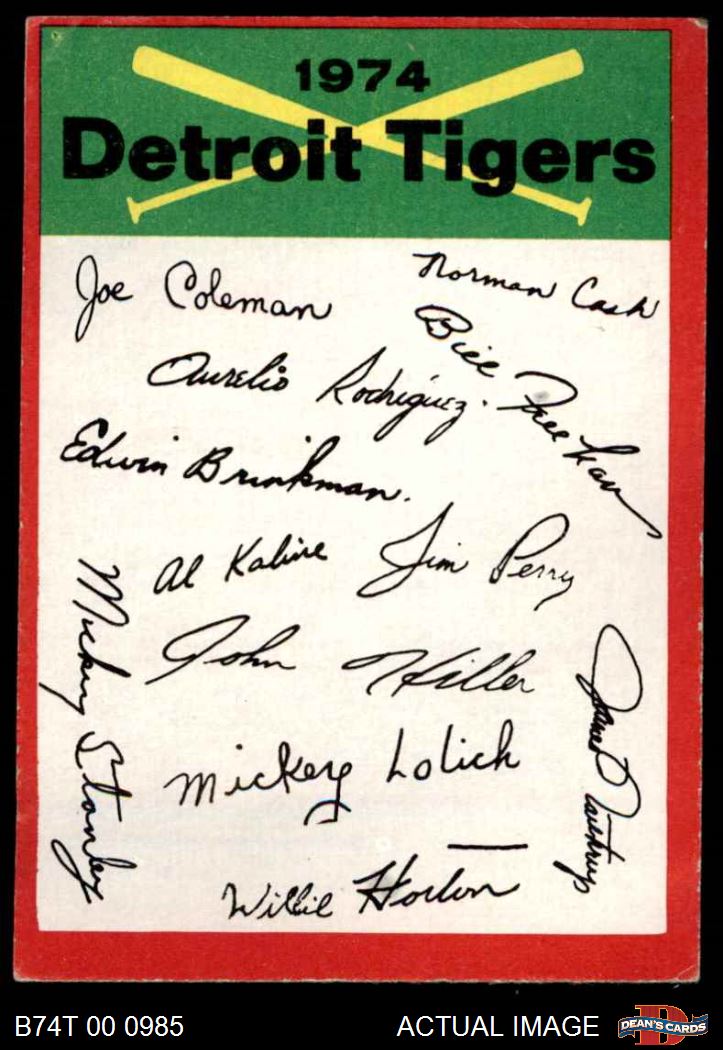 1974
Detroit Tigers
Joe Coleman
Norman Cash
Bill Freehan
Aurelio Rodriguez.
Edwin Brinkman.
Al Kaline
Jim Perry
Mickey Stanley
John Hiller
James Northrup
Mickey Lolich
Willie Horton
B74T 00 0985
ACTUAL IMAGE
D
DEAN'S CARDS